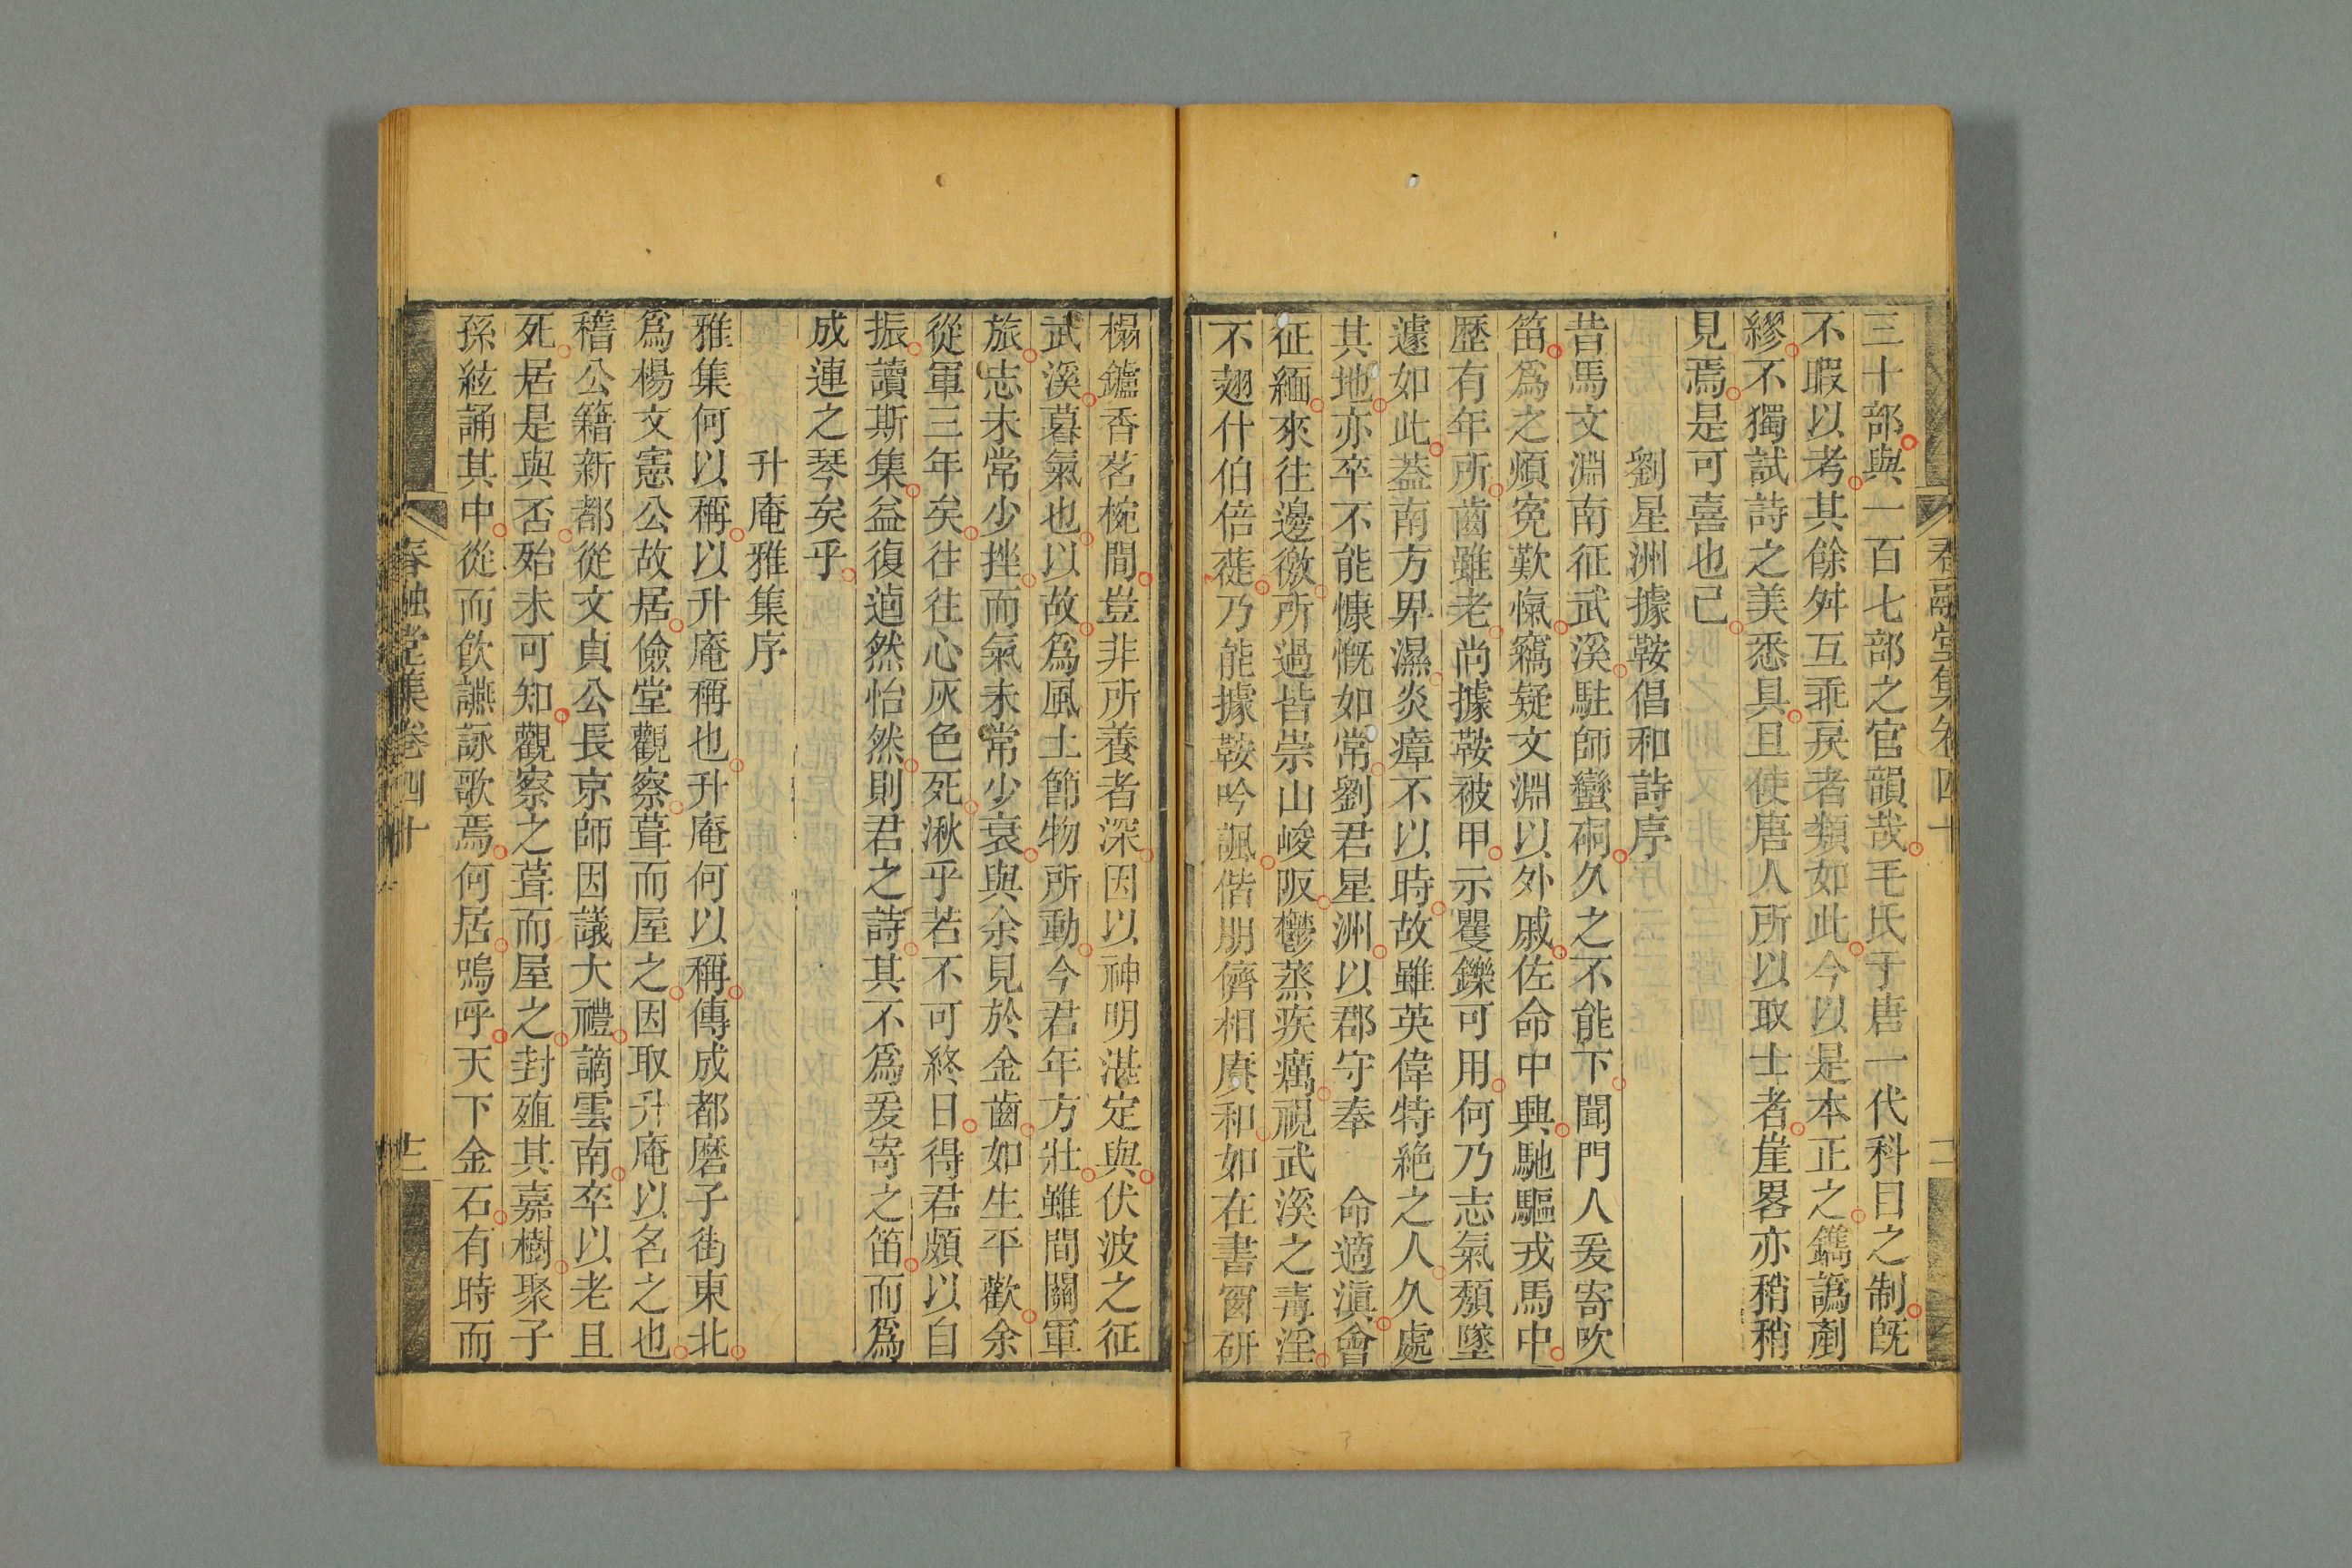 春融堂集卷四十
三十部與一百七部之官韻哉毛氏于唐一代科目之制旣
不暇以考其餘舛互乖戾者類如此今以是本正之鐫譌剷
繆不獨試詩之美悉具且使唐人所以取士者崖畧亦稍稍
見焉是可喜也已
劉星洲據鞍倡和詩序
昔馬文淵南征武溪駐師蠻硐久之不能下聞門人爰寄吹
笛爲之頫寃歎愾竊疑文淵以外戚佐命中興馳驅戎馬中
歷有年所齒雖老尚據鞍被甲示矍鑠可用何乃志氣頽墜
遽如此葢南方畀濕炎瘴不以時故雖英偉特絶之人久處
其地亦卒不能慷慨如常劉君星洲以郡守奉　命適滇會
征緬來往邊徼所過皆崇山峻阪鬱蒸疾癘視武溪之毒淫
不翅什伯倍蓰乃能據鞍吟諷偕朋儕相賡和如在書窗研
榻鑪香茗椀間豈非所養者深因以神明湛定與伏波之征
武溪暮氣也以故爲風土節物所動今君年方壯雖間關軍
旅志未常少挫而氣未常少衰與余見於金齒如生平歡余
從軍三年矣往往心灰色死湫乎若不可終日得君頗以自
振讀斯集益復逌然怡然則君之詩其不爲爰寄之笛而爲
成連之琴矣乎
升庵雅集序
雅集何以稱以升庵稱也升庵何以稱傳成都磨子街東北
爲楊文憲公故居儉堂觀察葺而屋之因取升庵以名之也
稽公籍新都從文貞公長京師因議大禮謫雲南卒以老且
死居是與否殆未可知觀察之葺而屋之封殖其嘉樹聚子
孫絃誦其中從而飲讌詠歌焉何居嗚呼天下金石有時而
春融堂集卷四十
十二